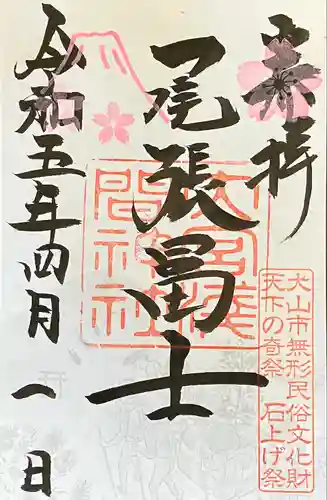 奉拝
尾張冨士
大宮浅
間神社
犬山市無形民俗文化財
天下の奇祭 石上げ祭
令和五年四月一日